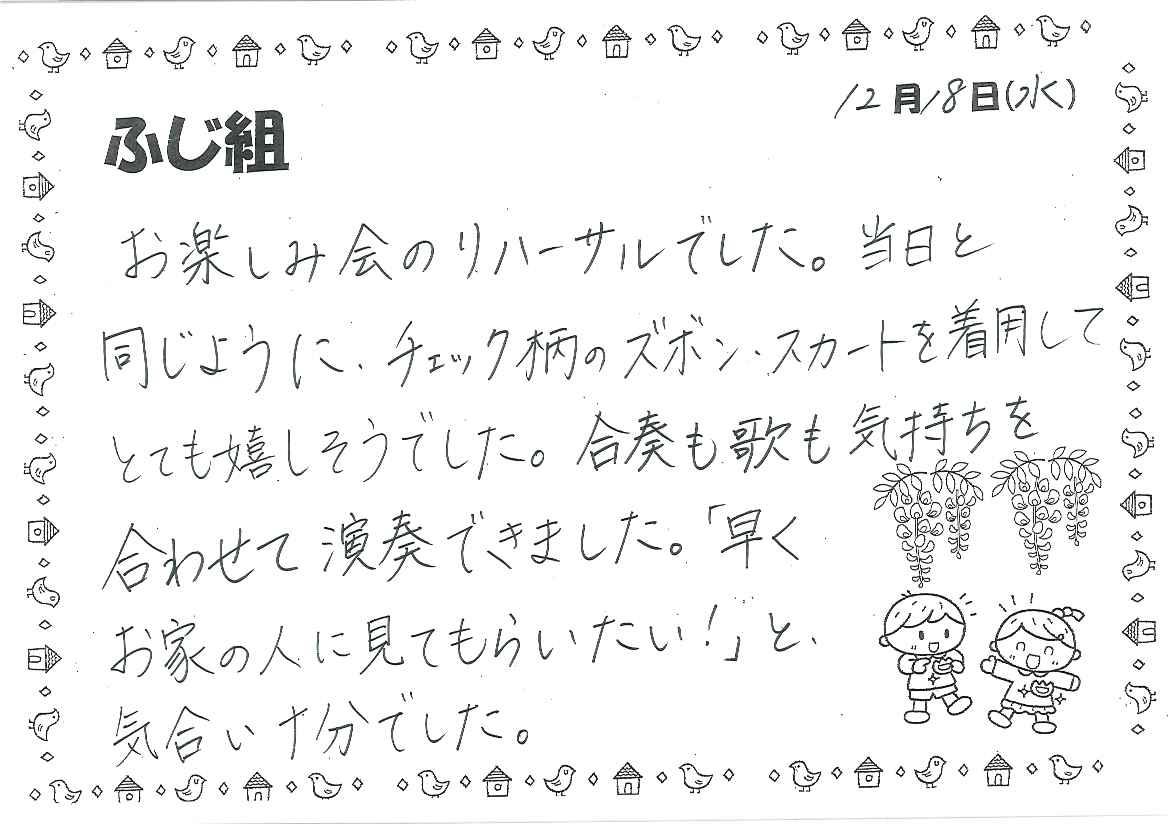 12月18日(水)
ふじ組
お楽しみ会のリハーサルでした。当日と
同じように、チェック柄のズボン・スカートを着用して
とても嬉しそうでした。合奏も歌も気持ちを
合わせて演奏できました。「早く
お家の人に見てもらいたい!」と、
気合い十分でした。